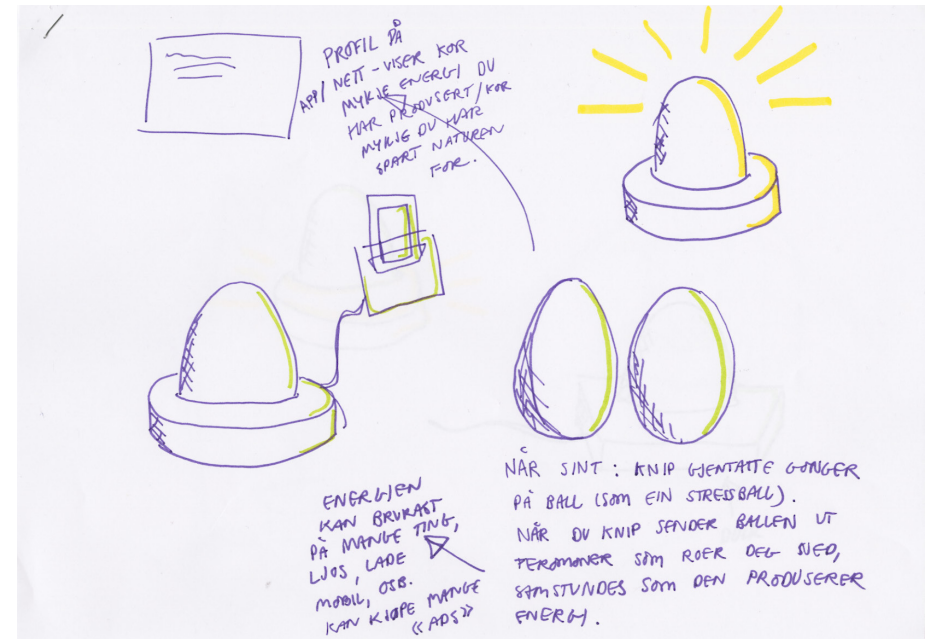 PROFIL PÅ
APP/NETT - VISER KOR
MYKJE ENERGI DU
HAR PRODUSERT/KOR
MYKJE DU HAR
SPART NATUREN
FOR.
ENERGIEN
KAN BRUKAST
PÅ MANGE TING,
LJOS, LADE
MOBIL, OSB.
KAN KJØPE MANGE
«ADS»
NÅR SINT : KNIP GJENTATTE GONGER
PÅ BALL (SOM EIN STRESSBALL).
NÅR DU KNIP SENDER BALLEN UT
FEROMONER SOM ROER DEG NED,
SAMSTUNDES SOM DEN PRODUSERER
ENERGI.